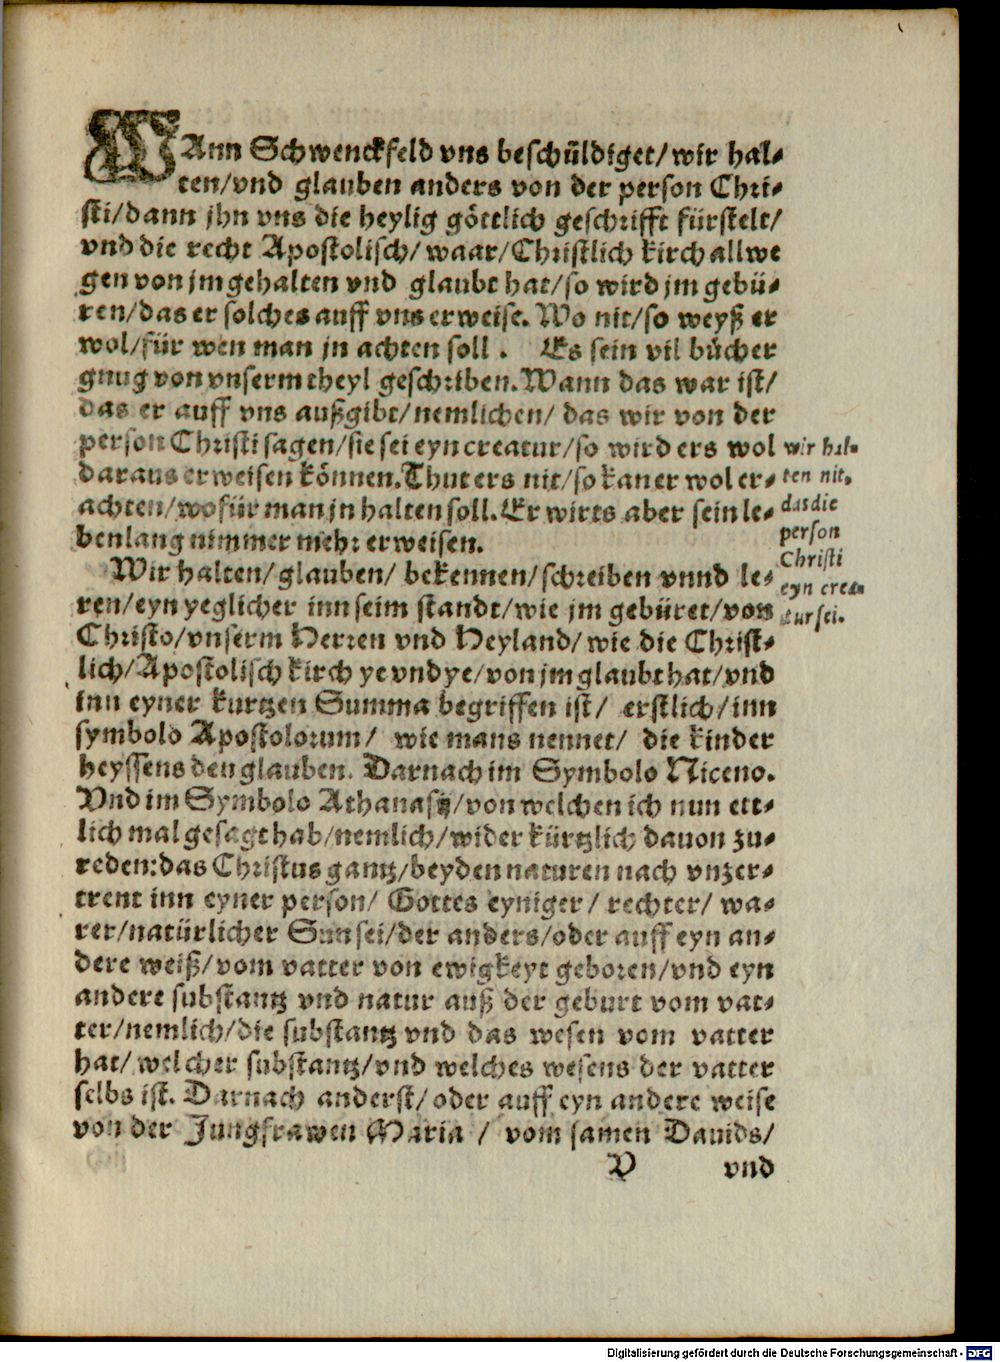 WAnn Schwenckfeld vns beschüldiget/wir hal⸗
ten/vnd glauben anders von der person Chri⸗
sti/dann jhn vns die heylig göttlich geschrifft fürstelt/
vnd die recht Apostolisch/waar/Christlich kirch allwe
gen von jm gehalten vnd glaubt hat/so wird jm gebü⸗
ren/das er solches auff vns erweise. Wo nit/so weyß er
wol/für wen man jn achten soll. Es sein vil bücher
gnug von vnserm theyl geschriben. Wann das war ist/
das er auff vns außgibt/nemlichen/ das wir von der
person Christi sagen/sie sei eyn creatur/so wird ers wol
daraus erweisen können. Thut ers nit/so kan er wol er⸗
achten/wofür man jn halten soll. Er wirts aber sein le⸗
benlang nimmer mehr erweisen.
wir hal⸗
ten nit,
das die
person
Christi
eyn crea⸗
tur sei.
Wir halten/glauben/ bekennen/schreiben vnnd le⸗
ren/eyn yeglicher inn seim standt/wie jm gebüret/von
Christo/vnserm Herren vnd Heyland/wie die Christ⸗
lich/Apostolisch kirch ye vnd ye/von jm glaubt hat/vnd
inn eyner kurtzen Summa begriffen ist/ erstlich/inn
symbolo Apostolorum/ wie mans nennet/ die kinder
heyssens den glauben. Darnach im Symbolo Niceno.
Vnd im Symbolo Athanasij/von welchen ich nun ett⸗
lich mal gesagt hab/nemlich/wider kürtzlich dauon zu⸗
reden:das Christus gantz/beyden naturen nach vnzer⸗
trent inn eyner person/ Gottes eyniger/ rechter/ wa⸗
rer/natürlicher Sun sei/der anders/oder auff eyn an⸗
dere weiß/vom vatter von ewigkeyt geboren/vnd eyn
andere substantz vnd natur auß der geburt vom vat⸗
ter/nemlich/die substantz vnd das wesen vom vatter
hat/ welcher substantz/vnd welches wesens der vatter
selbs ist. Darnach anderst/oder auff eyn andere weise
von der Jungfrawen Maria / vom samen Dauids/
V vnd
Digitalisierung gefördert durch die Deutsche Forschungsgemeinschaft - DFG